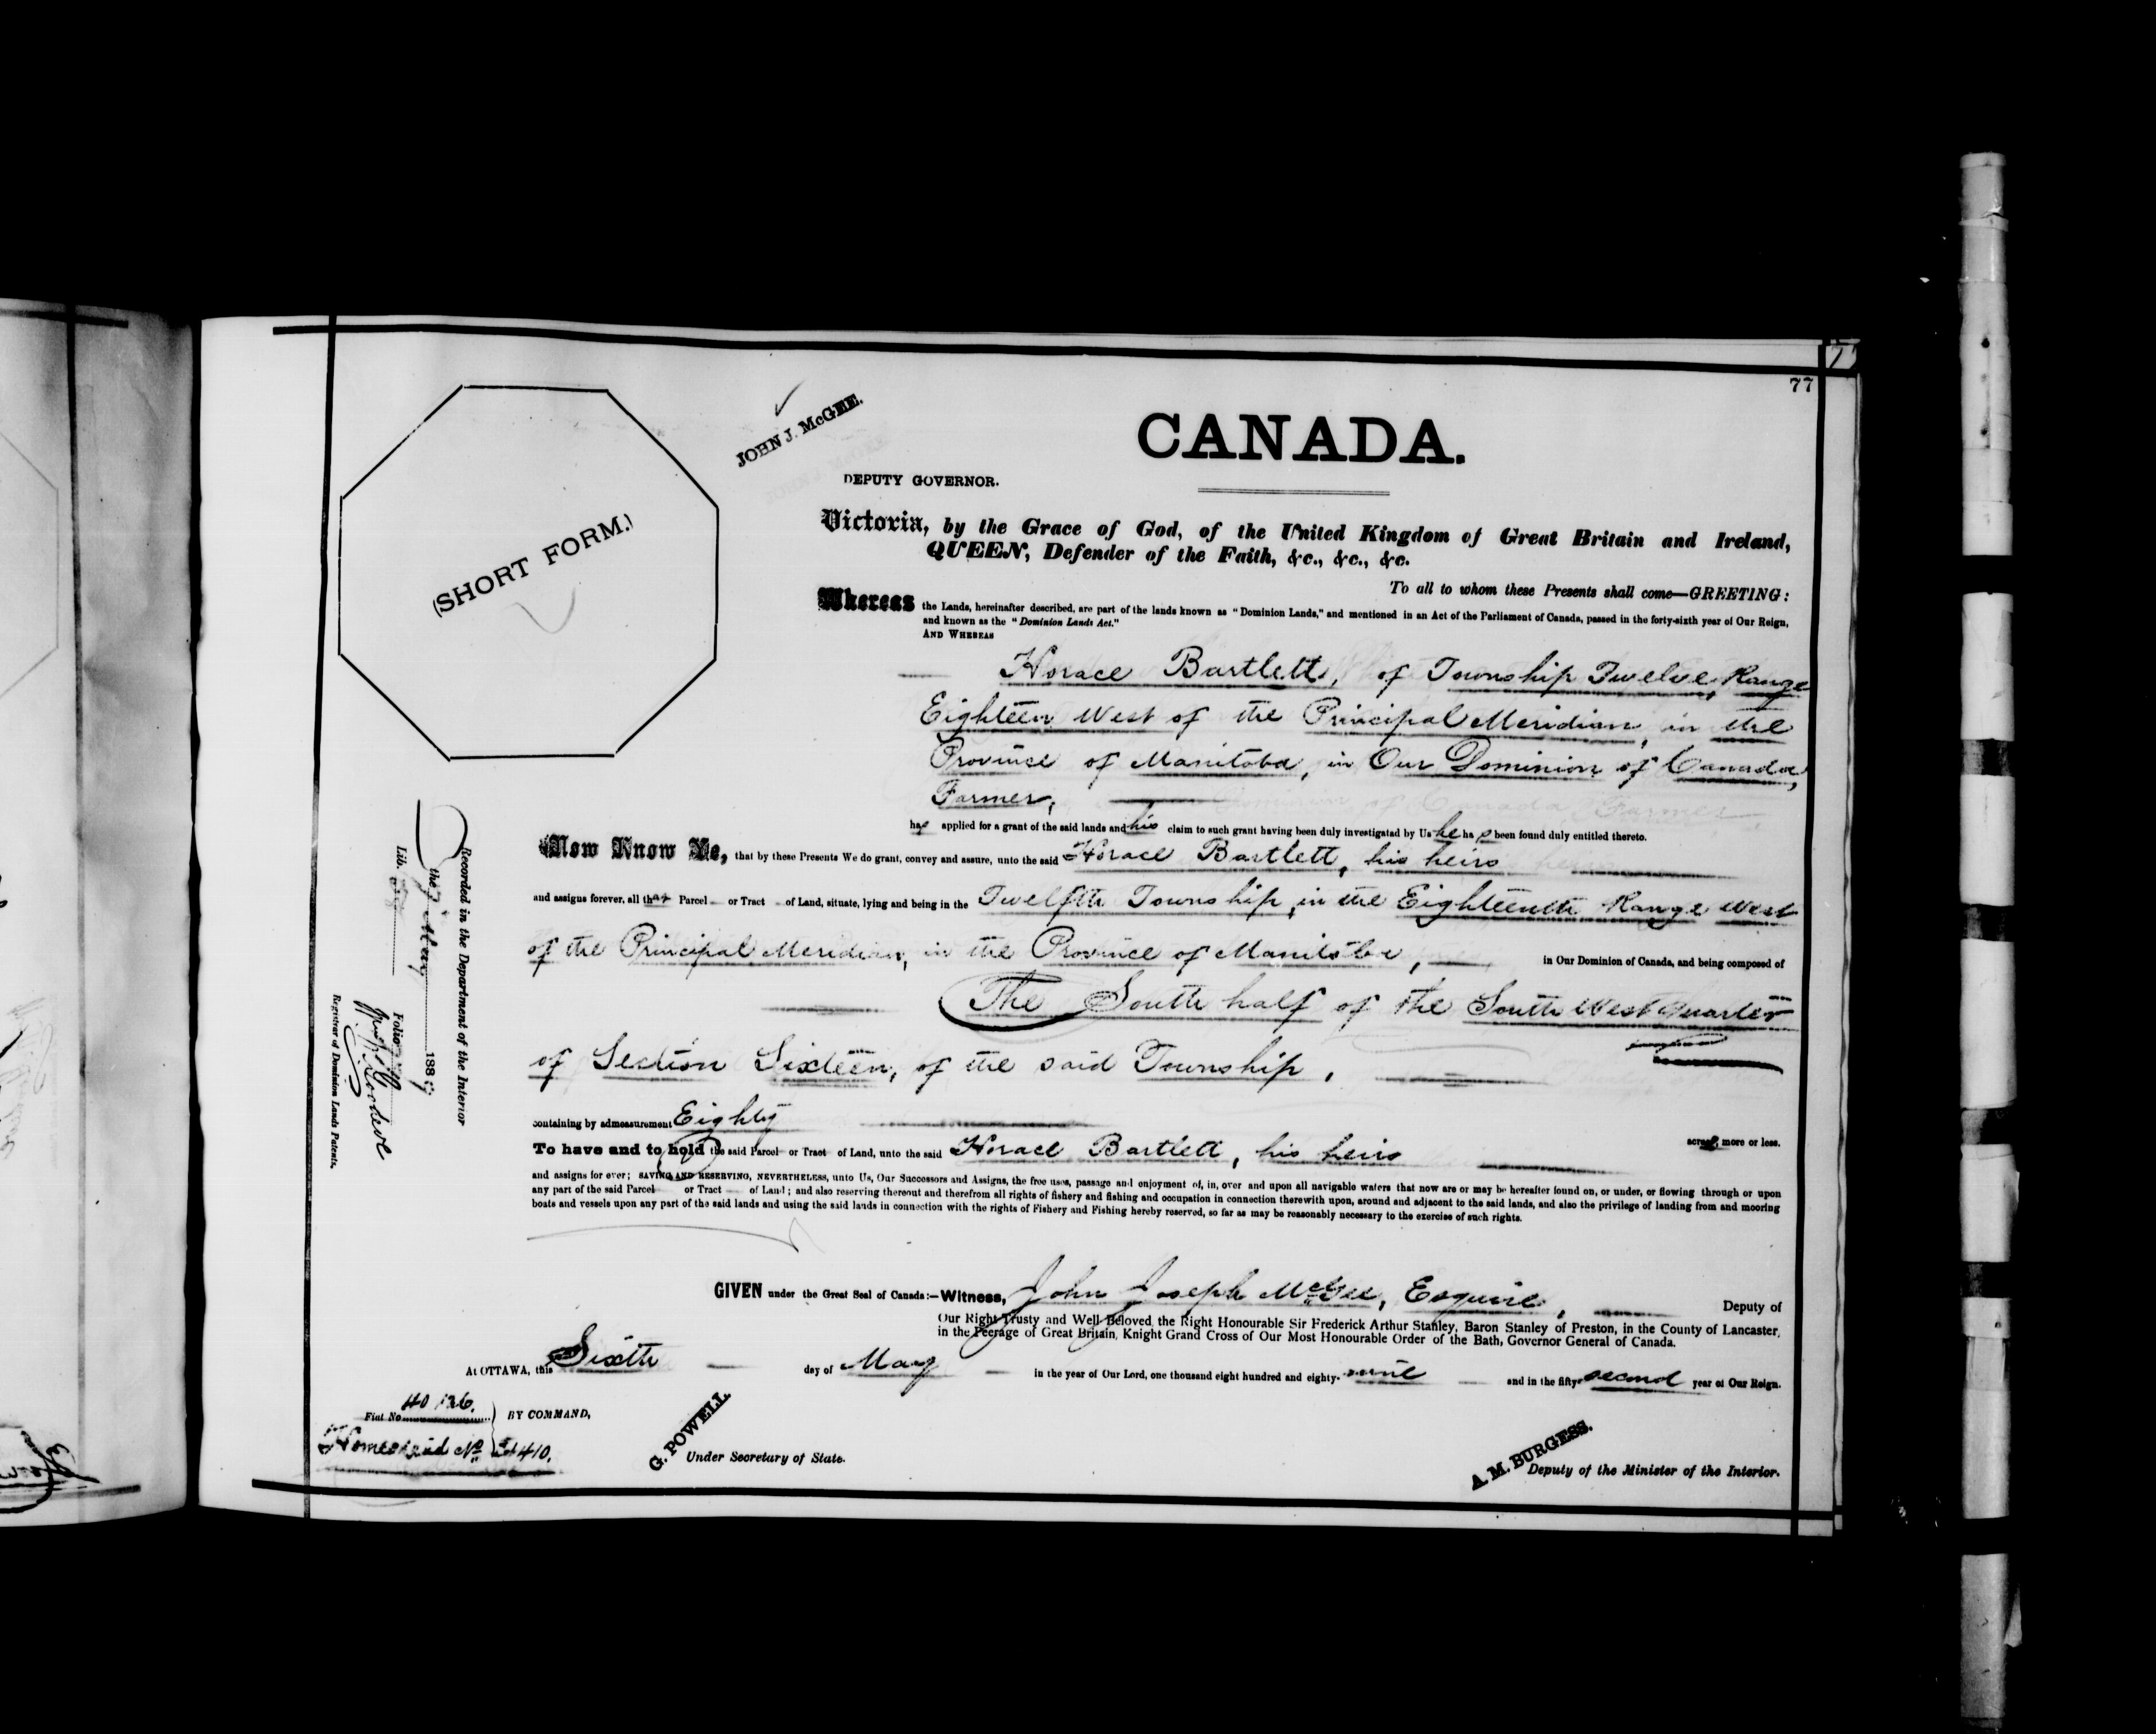 77
JOHN J. McGEE.
CANADA.
DEPUTY GOVERNOR.
(SHORT FORM.)
Victoria, by the Grace of God, of the United Kingdom of Great Britain and Ireland,
QUEEN, Defender of the Faith, &c., &c., &c.
To all to whom these Presents shall come—GREETING:
Whereas the Lands, hereinafter described, are part of the lands known as "Dominion Lands," and mentioned in an Act of the Parliament of Canada, passed in the forty-sixth year of Our Reign,
and known as the "Dominion Lands Act."
AND WHEREAS
Horace Bartlett, of Township Twelve, Range
Eighteen West of the Principal Meridian, in the
Province of Manitoba, in Our Dominion of Canada,
Farmer,
has applied for a grant of the said lands and his claim to such grant having been duly investigated by Us he has been found duly entitled thereto.
Now Know Ye, that by these Presents We do grant, convey and assure, unto the said Horace Bartlett, his heirs
and assigns forever, all that Parcel or Tract of Land, situate, lying and being in the Twelfth Township, in the Eighteenth Range West
of the Principal Meridian, in the Province of Manitoba, in Our Dominion of Canada, and being composed of
The South half of the South West quarter
of Section Sixteen, of the said Township,
containing by admeasurement Eighty acres, more or less.
To have and to hold the said Parcel or Tract of Land, unto the said Horace Bartlett, his heirs
and assigns for ever; SAVING AND RESERVING, NEVERTHELESS, unto Us, Our Successors and Assigns, the free uses, passage and enjoyment of, in, over and upon all navigable waters that now are or may be hereafter found on, or under, or flowing through or upon
any part of the said Parcel or Tract of Land; and also reserving thereout and therefrom all rights of fishery and fishing and occupation in connection therewith upon, around and adjacent to the said lands, and also the privilege of landing from and mooring
boats and vessels upon any part of the said lands and using the said lands in connection with the rights of Fishery and Fishing hereby reserved, so far as may be reasonably necessary to the exercise of such rights.
GIVEN under the Great Seal of Canada:—Witness, John Joseph McGee, Esquire, Deputy of
Our Right Trusty and Well-Beloved the Right Honourable Sir Frederick Arthur Stanley, Baron Stanley of Preston, in the County of Lancaster,
in the Peerage of Great Britain, Knight Grand Cross of Our Most Honourable Order of the Bath, Governor General of Canada.
At OTTAWA, this Sixth day of May in the year of Our Lord, one thousand eight hundred and eighty-nine and in the fifty-second year of Our Reign.
Fiat No. 40126. BY COMMAND,
Homestead No
G. POWELL
Under Secretary of State.
A. M. BURGESS.
Deputy of the Minister of the Interior.
Recorded in the Department of the Interior
the May 1889
Lib. Folio
Registrar of Dominion Lands Patents.